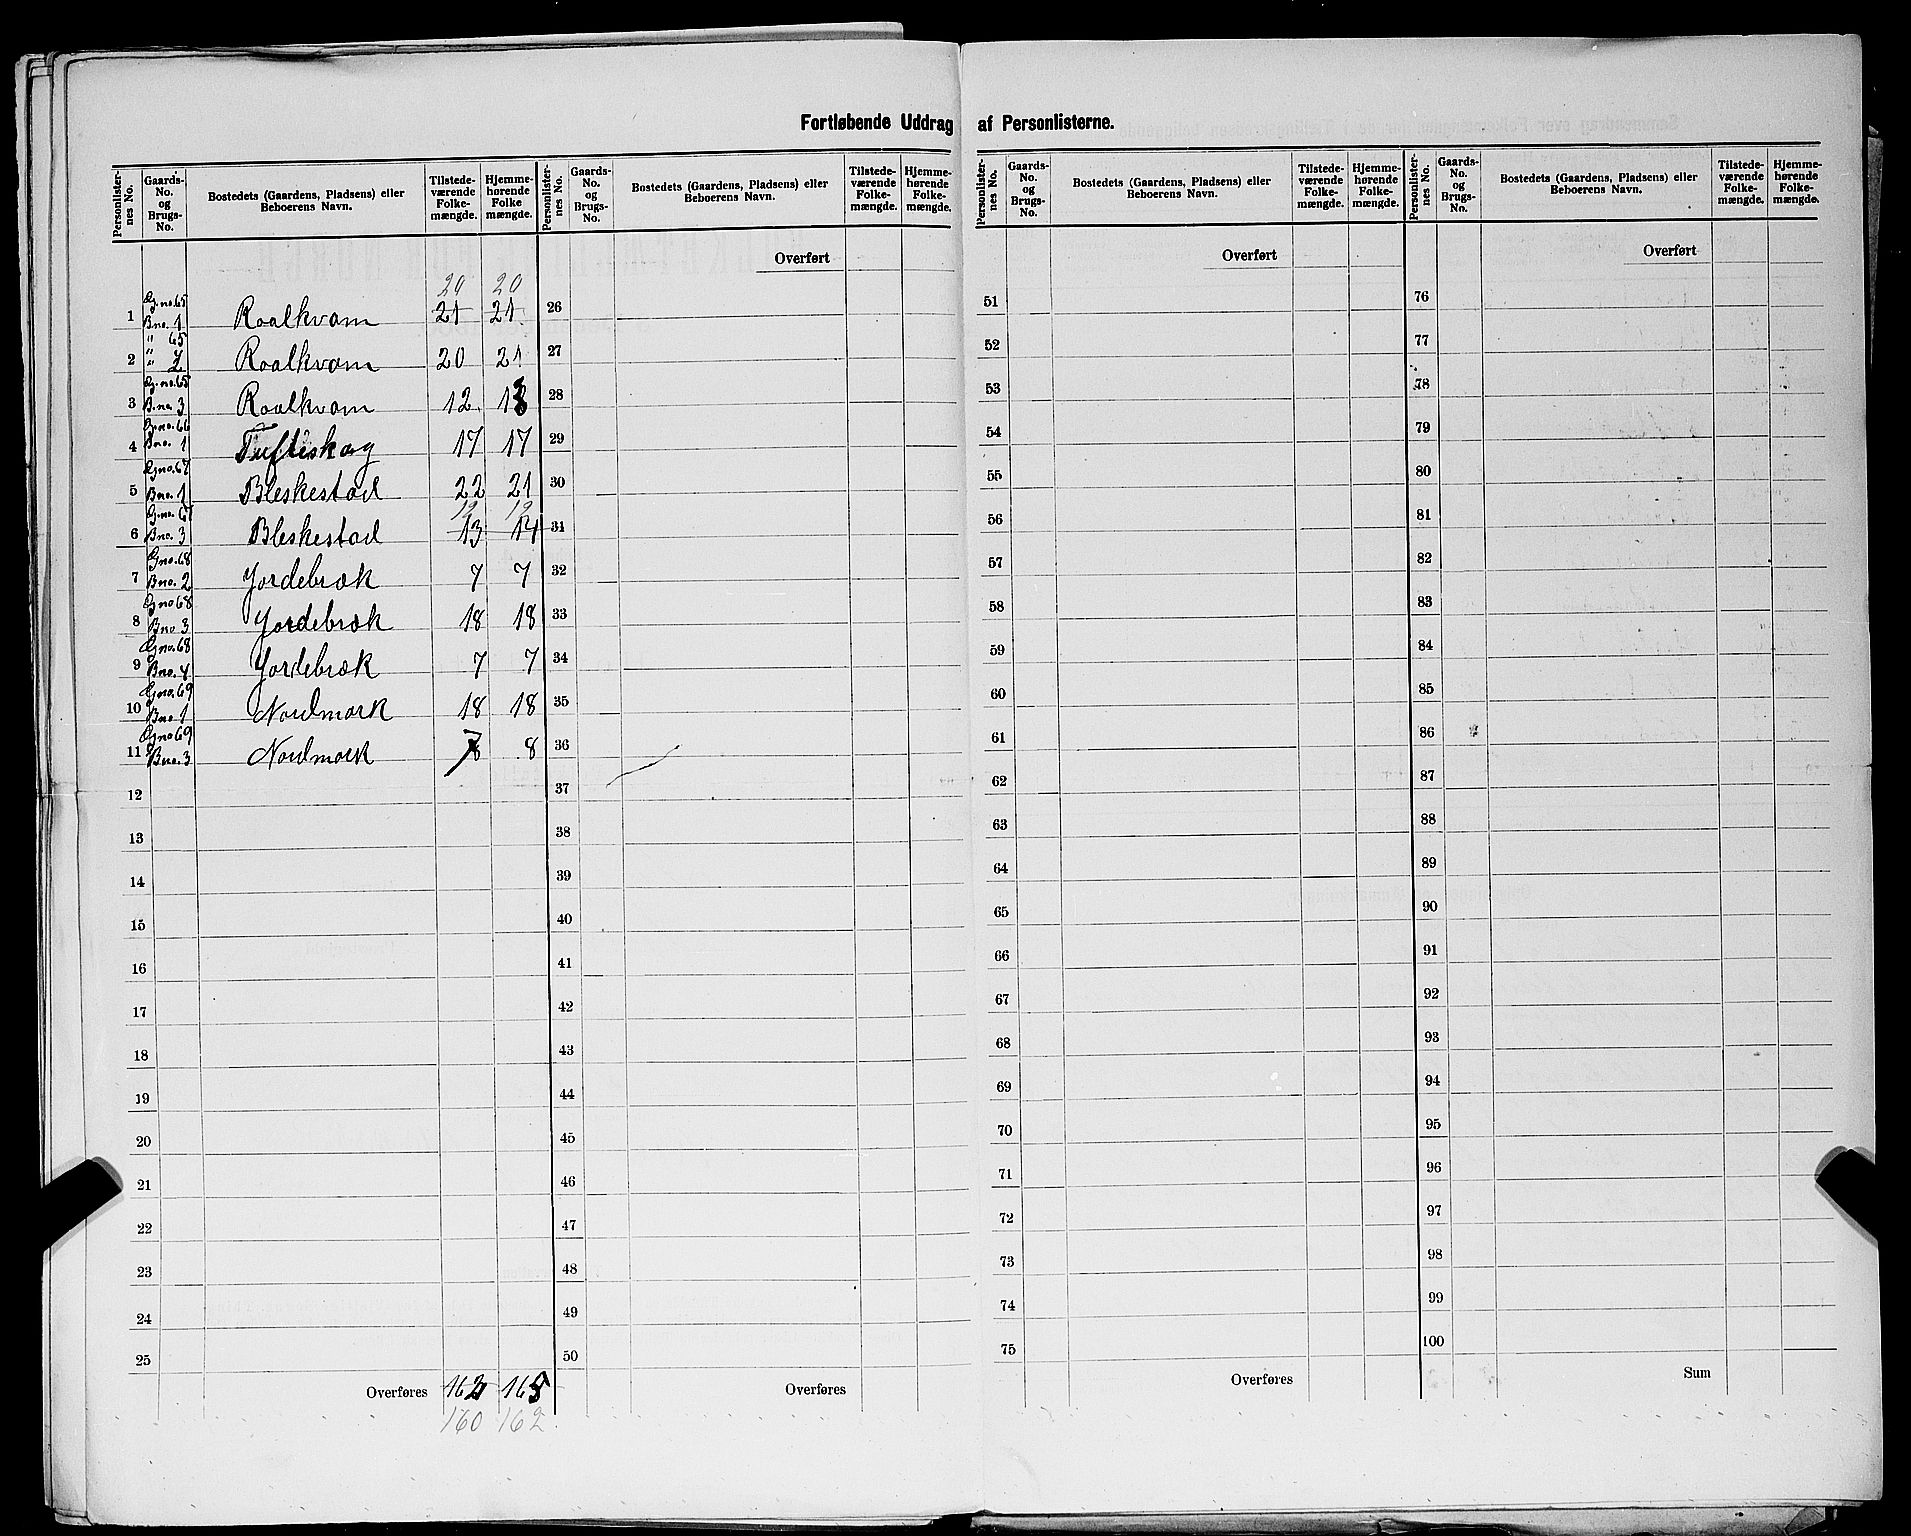 Fortløbende Uddrag af Personlisterne.
Personlister-nes No. | Gaards-No. og Brugs-No. | Bostedets (Gaardens, Pladsens) eller Beboerens Navn. | Tilstede-værende Folke-mængde. | Hjemme-hørende Folke mængde.
Personlister-nes No. | Gaards-No. og Brugs-No. | Bostedets (Gaardens, Pladsens) eller Beboerens Navn. | Tilstede-værende Folke-mængde. | Hjemme-hørende Folke-mængde.
Personlister-nes No. | Gaards-No. og Brugs-No. | Bostedets (Gaardens, Pladsens) eller Beboerens Navn. | Tilstede-værende Folke-mængde. | Hjemme-hørende Folke-mængde.
Personlister-nes No. | Gaards-No. og Brugs-No. | Bostedets (Gaardens, Pladsens) eller Beboerens Navn. | Tilstede-værende Folke-mængde. | Hjemme-hørende Folke-mængde.
20 20
1 G.no.65 Bno. 1 Roalkvam 21 21
2 " 65 " " 2 Roalkvam 20 21
3 G.no.65 B.no. 3 Roalkvam 12 13
4 G.no.66 Bno. 1 Tufteskog 17 17
5 Gno.67 Bno. 1 Bleskestad 22 21
12 12
6 G.no. 67 Bno. 3 Bleskestad 13 14
7 Gno.68 Bno. 2 Jordebræk 7 7
8 Gno68 Bno 3 Jordebræk 18 18
9 Gno.68 Bno. 4 Jordebræk 7 7
10 Gno.69 Bno 1 Nordmork 18 18
11 Gno69 Bno. 3 Nordmork 7 8
12
13
14
15
16
17
18
19
20
21
22
23
24
25
Overføres 162 165
160 162
Overført
26
27
28
29
30
31
32
33
34
35
36
37
38
39
40
41
42
43
44
45
46
47
48
49
50
Overføres
Overført
51
52
53
54
55
56
57
58
59
60
61
62
63
64
65
66
67
68
69
70
71
72
73
74
75
Overføres
Overført
76
77
78
79
80
81
82
83
84
85
86
87
88
89
90
91
92
93
94
95
96
97
98
99
100
Sum